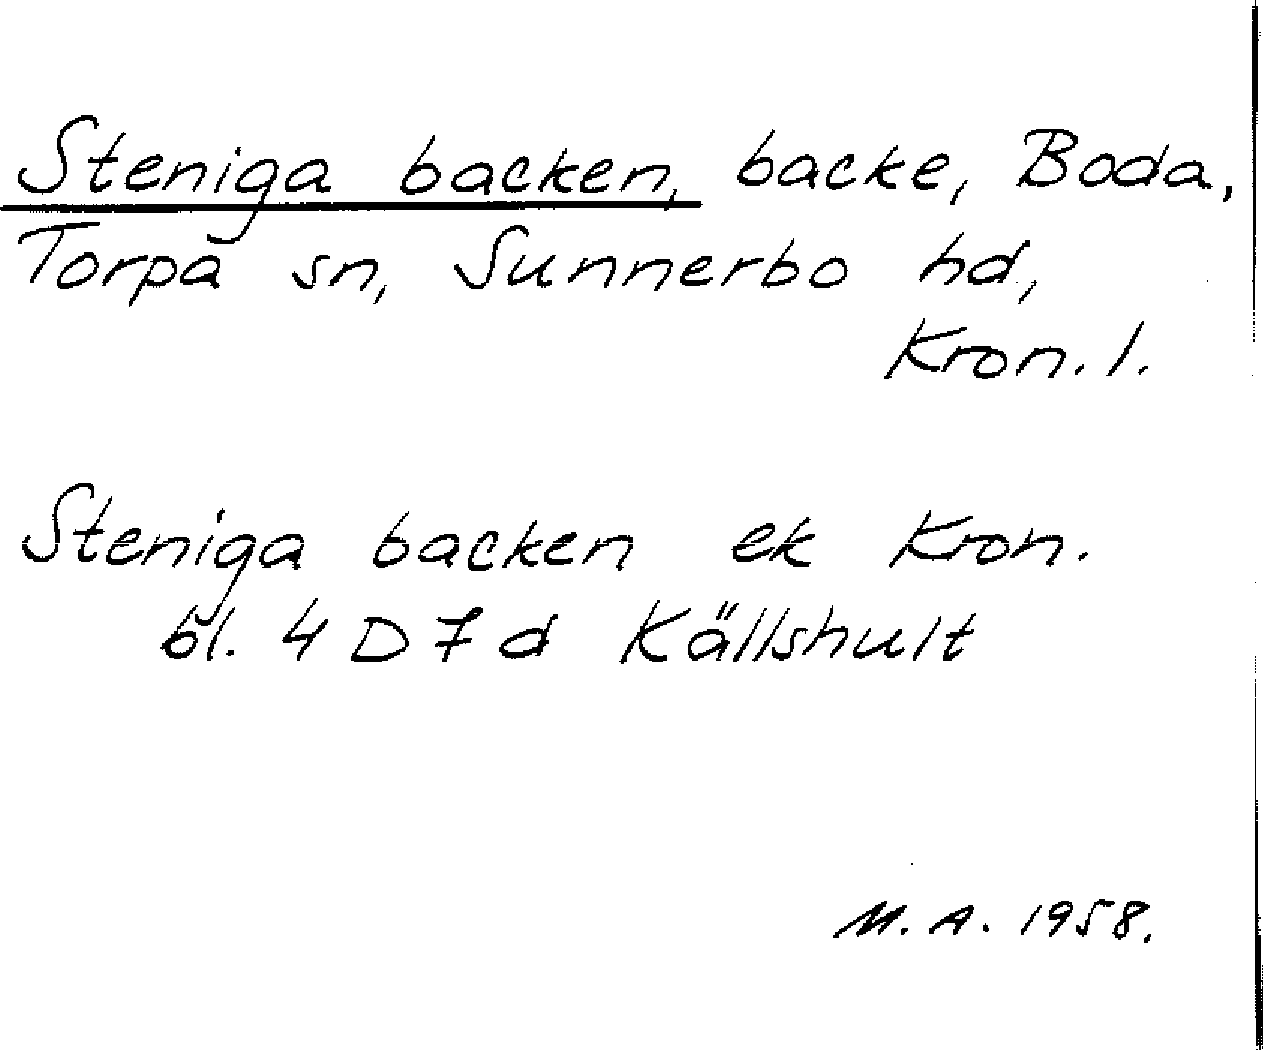 Steniga backen, backe, Boda,
Torpa sn, Sunnerbo hd,
Kron. l.
Steniga backen ek Kron.
bl. 4 D 7 d Källshult
M. A. 1958.